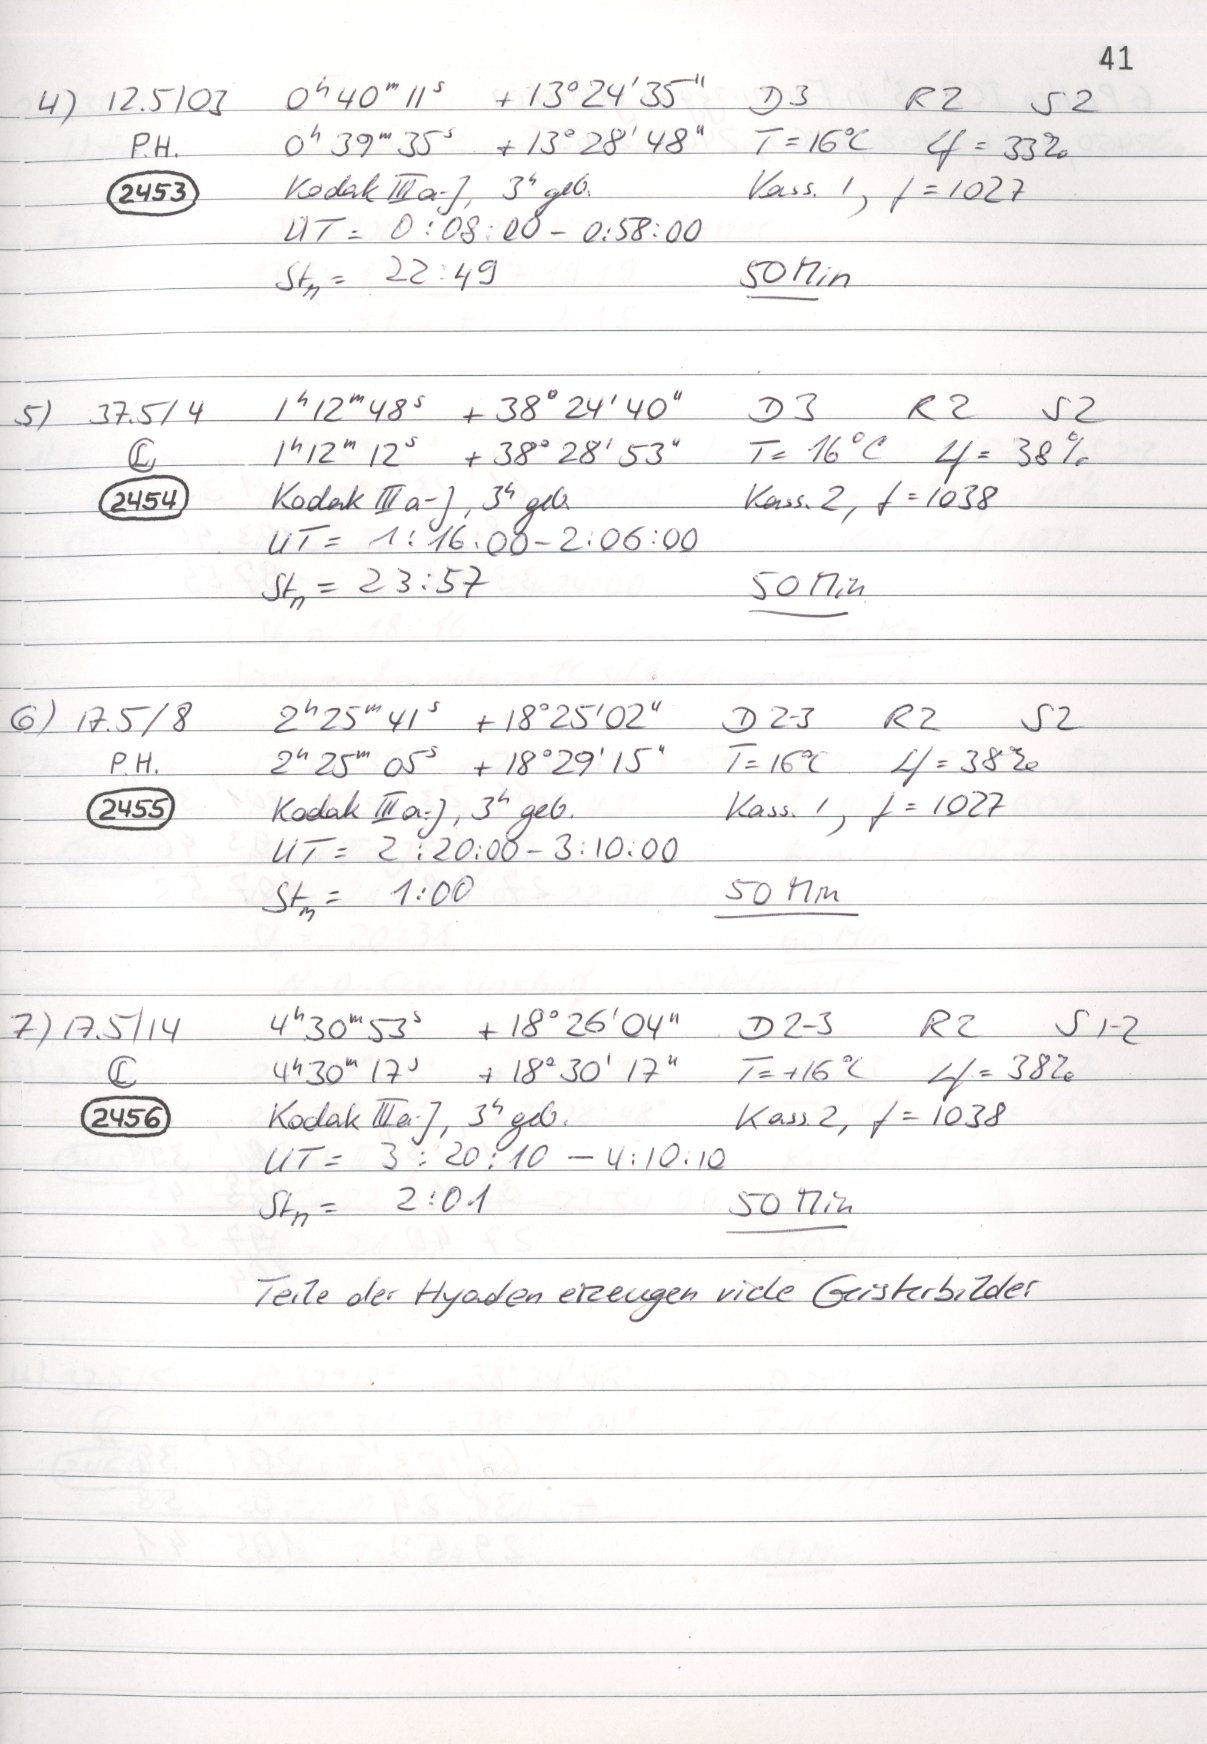 41
4) 12.5/03 0ʰ40ᵐ11ˢ +13°24'35" D3 R2 S2
P.H. 0ʰ39ᵐ35ˢ +13°28'48" T=16°C Lf=33%
2453 Kodak IIIa-J, 3ʰ geb. Kass. 1, f=1027
UT= 0:08:00-0:58:00
Stₙ= 22:49 50 Min
5) 37.5/4 1ʰ12ᵐ48ˢ +38°24'40" D3 R2 S2
1ʰ12ᵐ12ˢ +38°28'53" T= 16°C Lf= 38%
2454 Kodak IIIa-J, 3ʰ geb. Kass. 2, f=1038
UT= 1:16:00-2:06:00
Stₙ= 23:57 50 Min
6) 17.5/8 2ʰ25ᵐ41ˢ +18°25'02" D2-3 R2 S2
P.H. 2ʰ25ᵐ05ˢ +18°29'15" T=16°C Lf=38%
2455 Kodak IIIa-J, 3ʰ geb. Kass. 1, f=1027
UT= 2:20:00-3:10:00
Stₙ= 1:00 50 Min
7) 17.5/14 4ʰ30ᵐ53ˢ +18°26'04" D2-3 R2 S1-2
4ʰ30ᵐ17ˢ +18°30'17" T=+16°C Lf=38%
2456 Kodak IIIa-J, 3ʰ geb. Kass. 2, f=1038
UT= 3:20:10-4:10:10
Stₙ= 2:01 50 Min
Teile der Hyaden erzeugen viele Geisterbilder